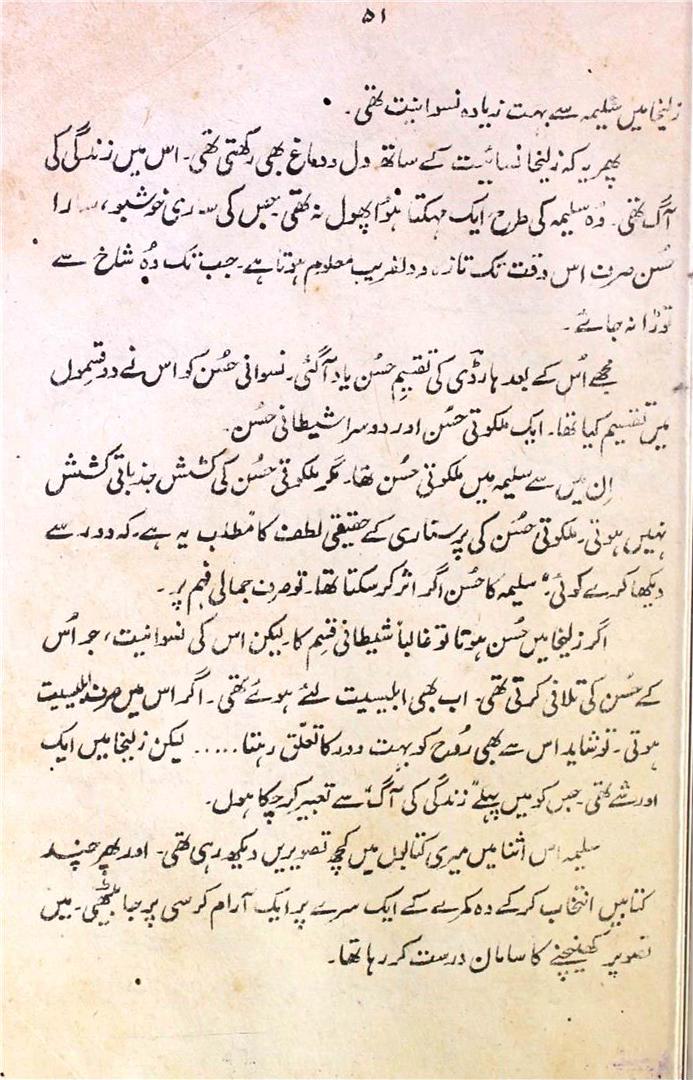 ۵۱
زلیخا میں سلیمہ سے بہت زیادہ نسوانیت تھی۔
پھر یہ کہ زلیخا نسائیت کے ساتھ دل و دماغ بھی رکھتی تھی۔ اس میں زندگی کی
آگ تھی۔ وُہ سلیمہ کی طرح ایک مہکتا ہوُا پھول نہ تھی جس کی ساری خوشبو، سارا
حُسن صرف اس وقت تک تازہ و دلفریب معلوم ہوتا ہے۔ جب تک وُہ شاخ سے
توڑا نہ جائے۔
مجھے اُس کے بعد ہارڈی کی تقسیمِ حُسن یاد آگئی۔ نسوانی حُسن کو اس نے دو قسموں
میں تقسیم کیا تھا۔ ایک ملکوتی حُسن اور دوسرا شیطانی حُسن۔
اِن میں سے سلیمہ میں ملکوتی حُسن تھا۔ مگر ملکوتی حُسن کی کشش جذباتی کشش
نہیں ہوتی۔ ملکوتی حُسن کی پرستاری کے حقیقی لطف کا مطلب یہ ہے۔ کہ دور سے
دیکھا کرے کوئی" سلیمہ کا حُسن اگر اثر کر سکتا تھا۔ تو صرف جمالی فہم پر۔
اگر زلیخا میں حُسن ہوتا تو غالباً شیطانی قسِم کا۔ لیکن اس کی نسوانیت، جو اُس
کے حُسن کی تلافی کرتی تھی۔ اب بھی ابلیسیت لئے ہوئے تھی۔ اگر اس میں صرف ابلیسیت
ہوتی۔ تو شاید اس سے بھی رُوح کو بہت دور کا تعلّق رہتا ..... لیکن زلیخا میں ایک
اور شے تھی۔ جس کو میں پہلے "زندگی کی آگ" سے تعبیر کر چکا ہوں۔
سلیمہ اس اثنا میں میری کتابوں میں کچھ تصویریں دیکھ رہی تھی۔ اور پھر چند
کتابیں انتخاب کر کے وہ کمرے کے ایک سرے پر ایک آرام کرسی پر جا بیٹھی۔ میں
تصویر کھینچنے کا سامان درست کر رہا تھا۔